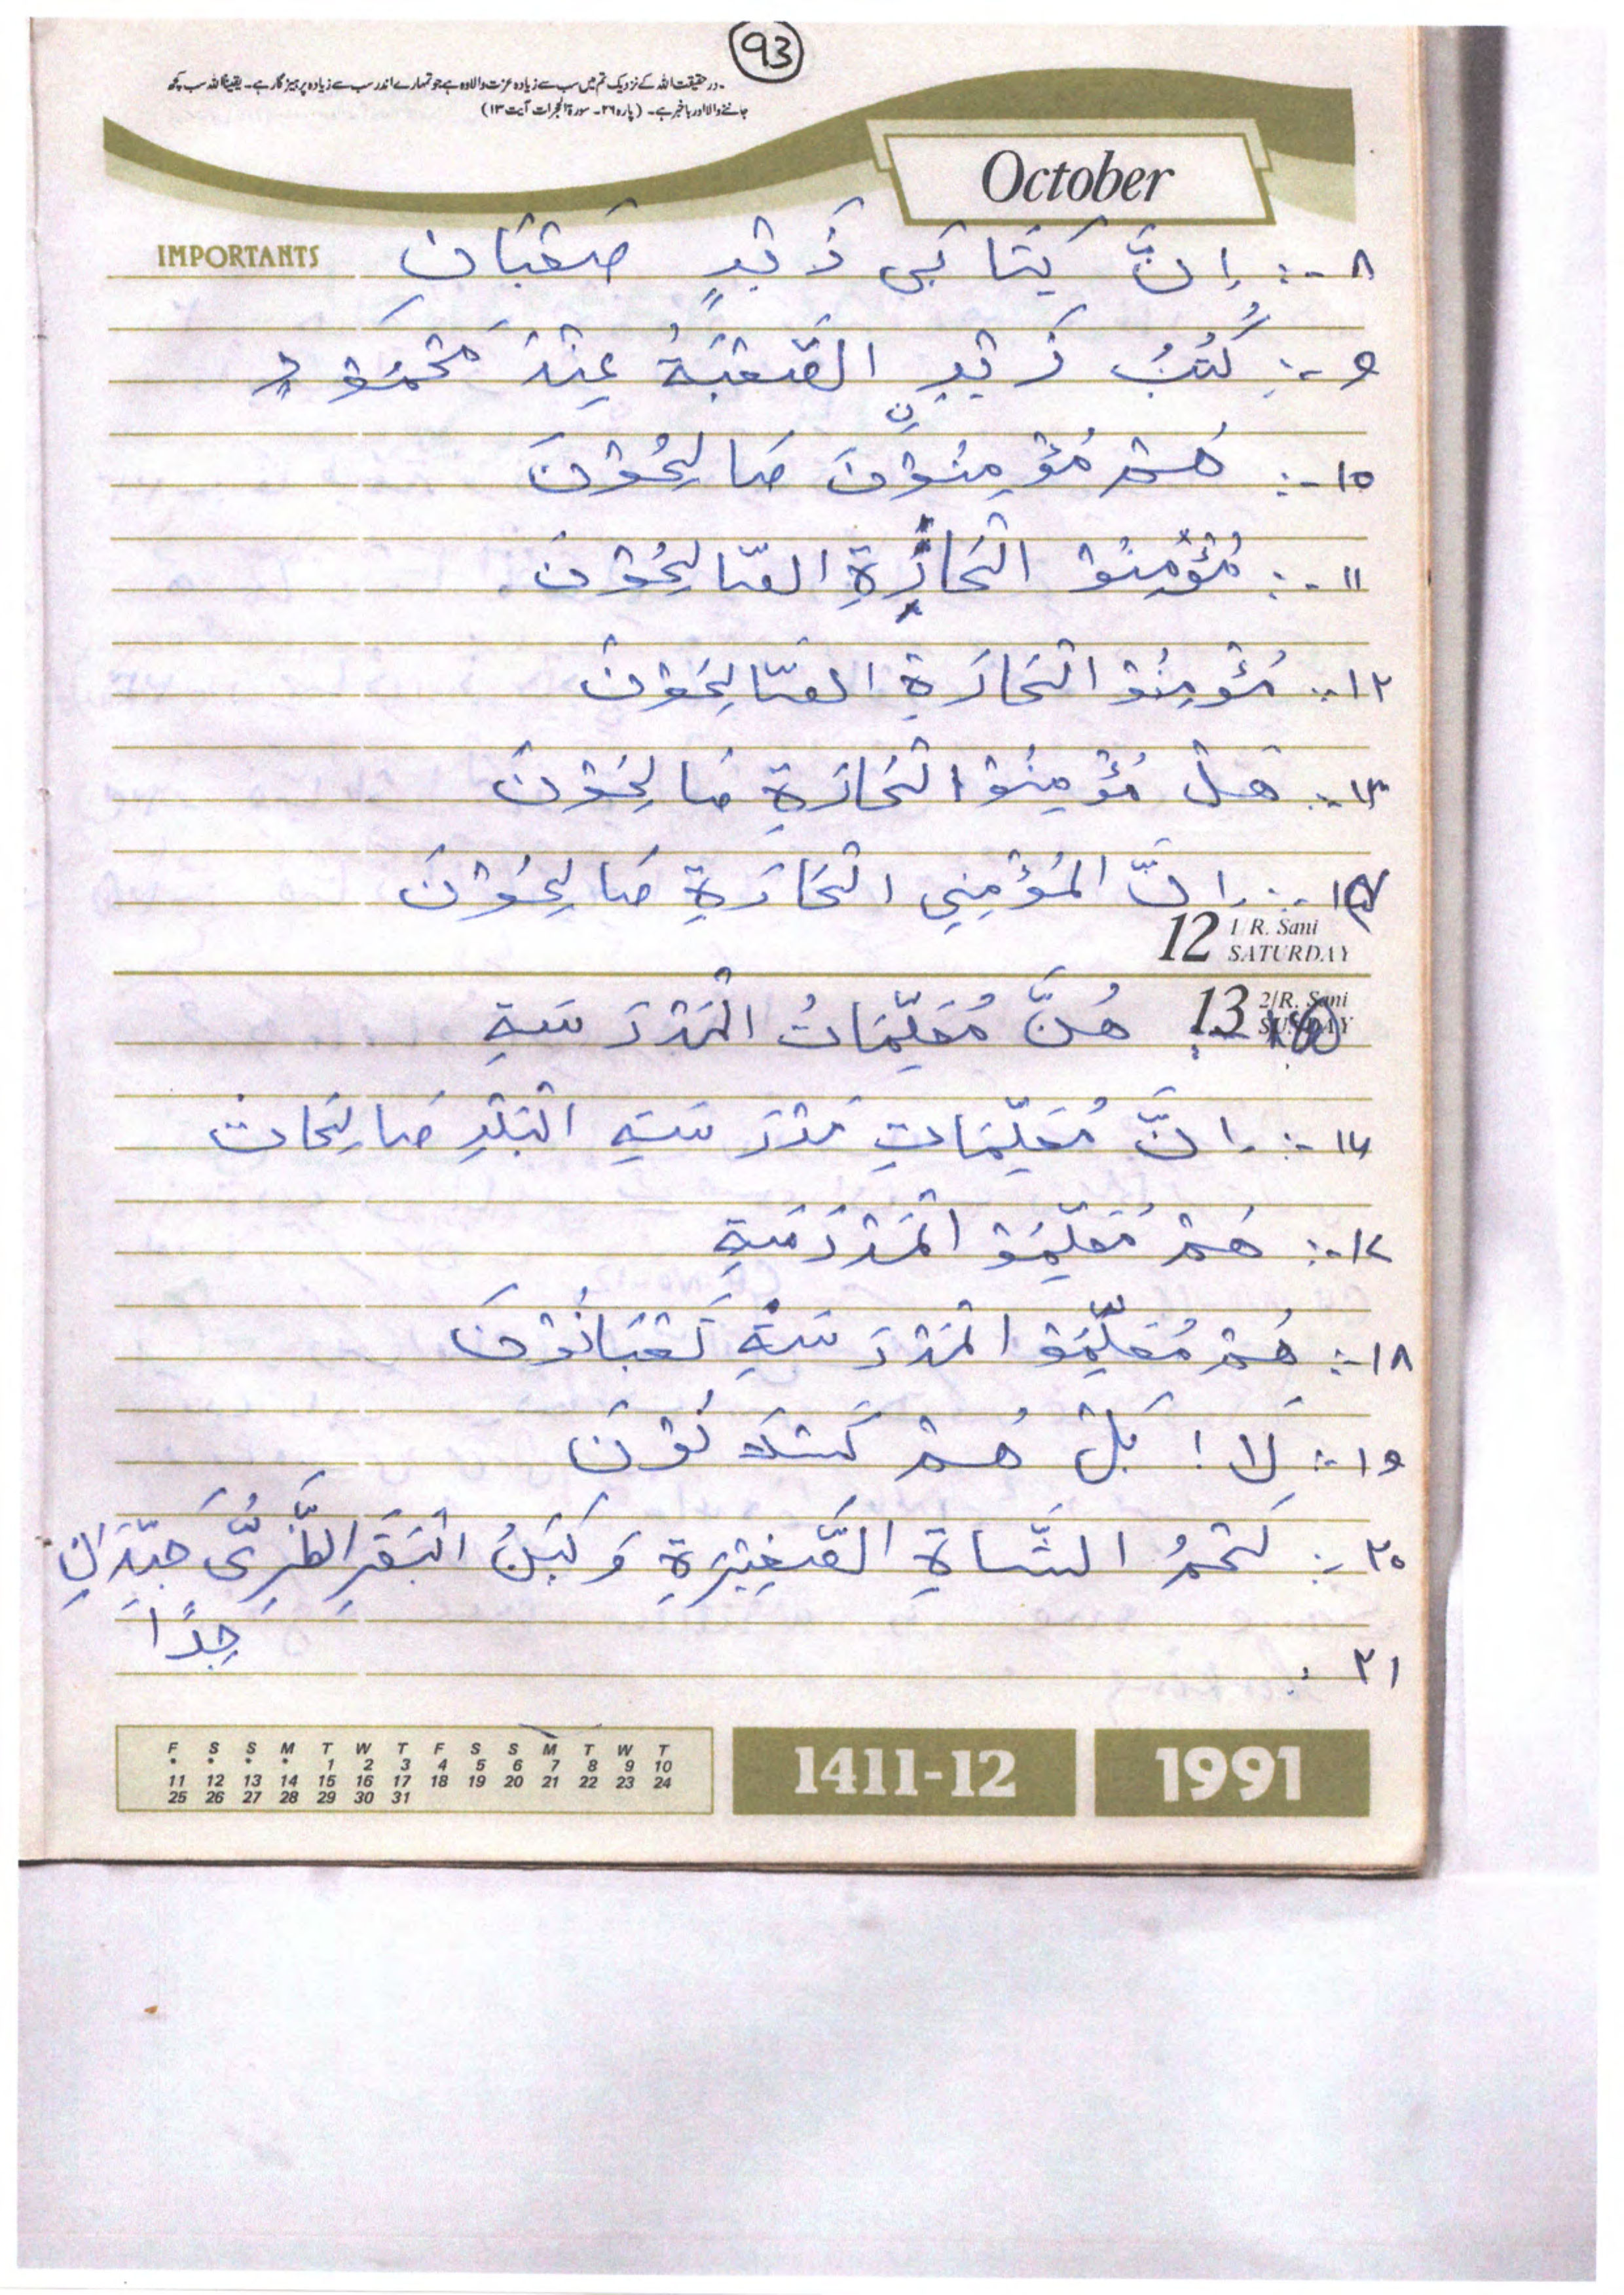 93
۔ درحقیقت اللہ کے نزدیک تم میں سب سے زیادہ عزت والا وہ ہے جو تمہارے اندر سب سے زیادہ پرہیزگار ہے۔ یقیناً اللہ سب کچھ
جاننے والا اور باخبر ہے۔ (پارہ ۲۶۔ سورۃ الحجرات آیت ۱۳)
October
IMPORTANTS
۸ -: اِنَّ كِتَابَى زَيْدٍ صَعْبَانِ
۹ -: كُتُبُ زَيْدٍ الصَّعْبَةُ عِنْدَ مَحْمُوْدٍ
۱۰ -: هُمْ مُؤْمِنُوْنَ صَالِحُوْنَ
۱۱ -: مُؤْمِنُوْ الْحَارَةِ الصَّالِحُوْنَ
۱۲ -: مُؤْمِنُوْ الْحَارَةِ الصَّالِحُوْنَ
۱۳ -: هَلْ مُؤْمِنُوْ الْحَارَةِ صَالِحُوْنَ
۱۴ -: اِنَّ الْمُؤْمِنِي الْحَارَةِ صَالِحُوْنَ
12 1/R. Sani
SATURDAY
13 2/R. Sani
SUNDAY
۱۵ -: هُنَّ مُعَلِّمَاتُ الْمَدْرَسَةِ
۱۶ -: اِنَّ مُعَلِّمَاتِ مَدْرَسَةِ الْبَلَدِ صَالِحَاتٌ
۱۷ -: هُمْ مُعَلِّمُوْ الْمَدْرَسَةِ
۱۸ -: هُمْ مُعَلِّمُوْ الْمَدْرَسَةِ تَعْبَانُوْنَ
۱۹ -: لَا ! بَلْ هُمْ كَسْلَانُوْنَ
۲۰ -: لَحْمُ الشَّاةِ الصَّغِيْرَةِ وَ لَبَنُ الْبَقَرِ الطَّرِىُّ جَيِّدَانِ
جِدًّا
۲۱ :
F S S M T W T F S S M T W T
* * * * 1 2 3 4 5 6 7 8 9 10
11 12 13 14 15 16 17 18 19 20 21 22 23 24
25 26 27 28 29 30 31
1411-12
1991